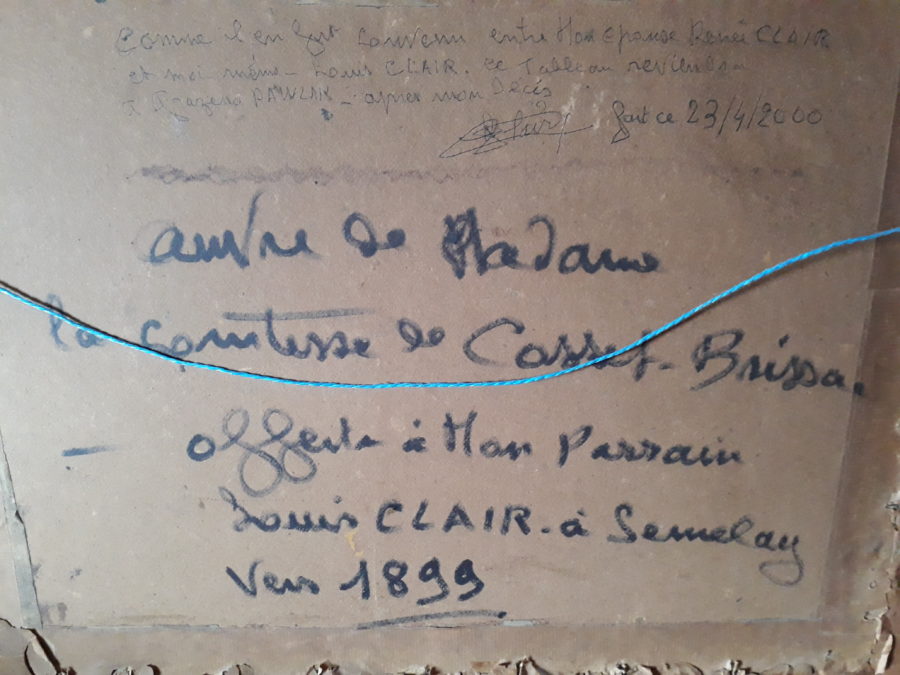 Comme il en fut convenu entre Mon epouse Renée CLAIR
et moi même - Louis CLAIR. ce Tableau reviendra
PAWLAK - apres mon Décès
fait ce 23/4/2000
œuvre de Madame
la comtesse de Cossé-Brissa.
offerte à Mon Parrain
Louis CLAIR - à Semelay
Vers 1899